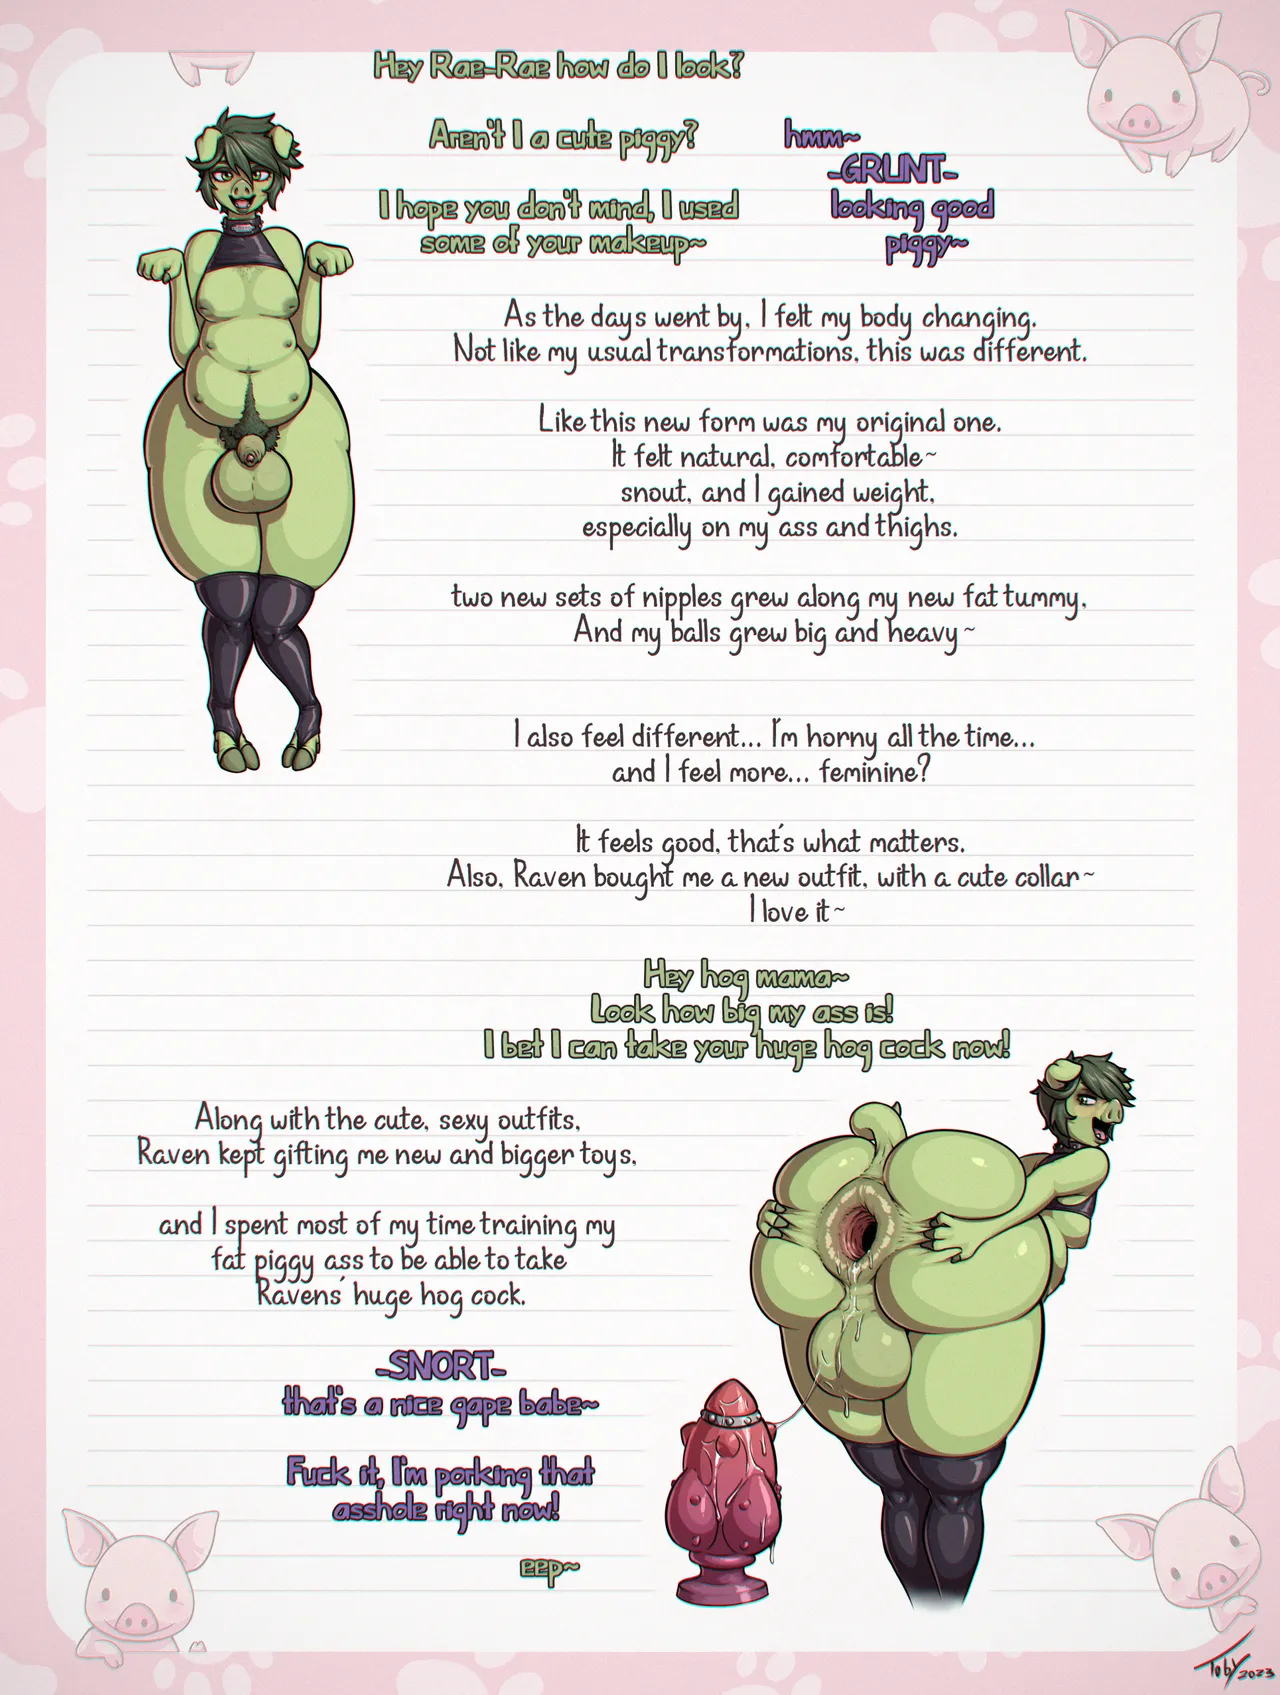 Hey Rae-Rae how do I look?
Aren't I a cute piggy?
I hope you don't mind, I used
some of your makeup~
hmm~
-GRUNT-
looking good
piggy~
As the days went by, I felt my body changing.
Not like my usual transformations, this was different.
Like this new form was my original one.
It felt natural, comfortable~
snout, and I gained weight,
especially on my ass and thighs.
two new sets of nipples grew along my new fat tummy,
And my balls grew big and heavy~
I also feel different... I'm horny all the time...
and I feel more... feminine?
It feels good, that's what matters.
Also, Raven bought me a new outfit, with a cute collar~
I love it~
Hey hog mama~
Look how big my ass is!
I bet I can take your huge hog cock now!
Along with the cute, sexy outfits,
Raven kept gifting me new and bigger toys,
and I spent most of my time training my
fat piggy ass to be able to take
Ravens' huge hog cock.
-SNORT-
that's a nice gape babe~
Fuck it, I'm porking that
asshole right now!
eep~
Toby 2023